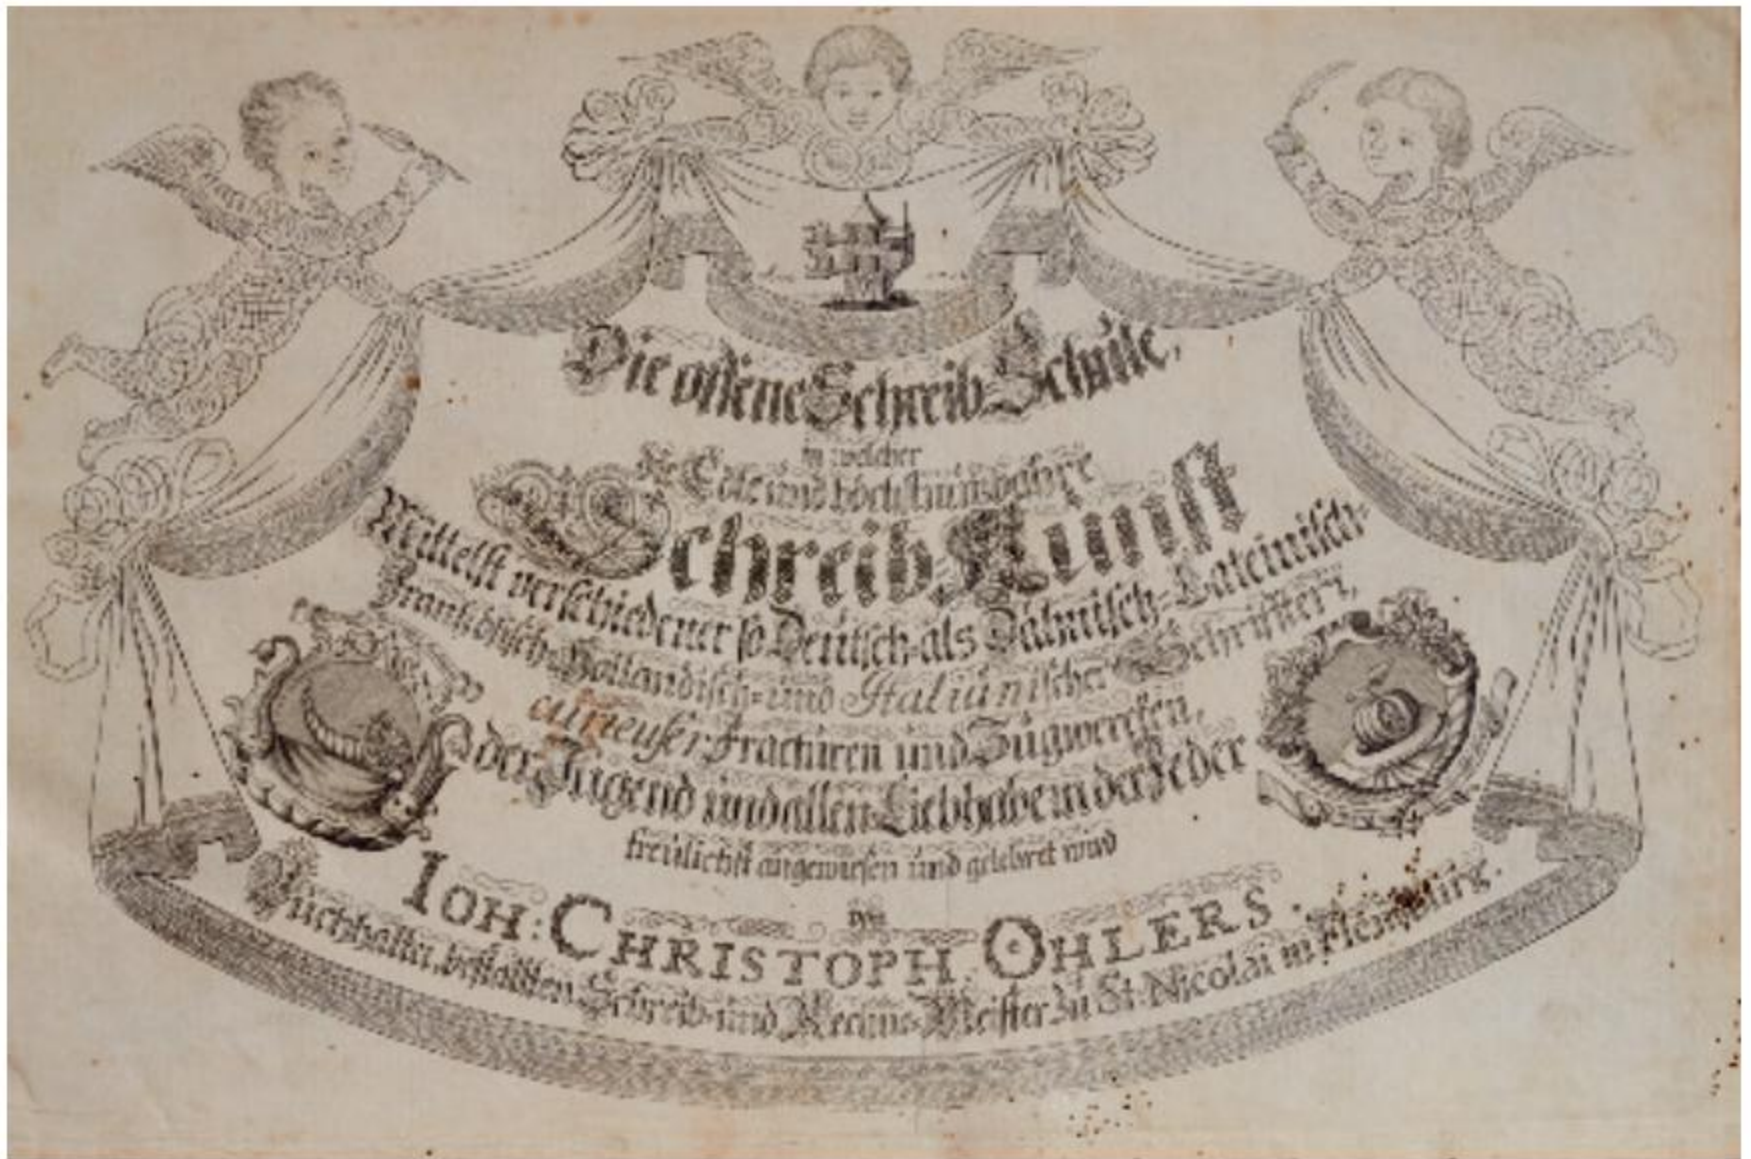 Die offene Schreib Schule,
in welcher
die Edle und höchstnutzbahre
Schreib Kunst
Mittelst verschiedener so Deutsch-als Dähnisch-Lateinisch-
Frantzösisch-Holländisch-und Italiänischer Schrifften,
curieuser Fracturen und Zügwercken,
der Jugend und allen Liebhabern der Feder
treülichst angewiesen und gelehret wird
von
IOH: CHRISTOPH OHLERS.
Buchhalter, bestallten Schreib-und Rechen-Meister zu St. Nicolai in Flensburg.